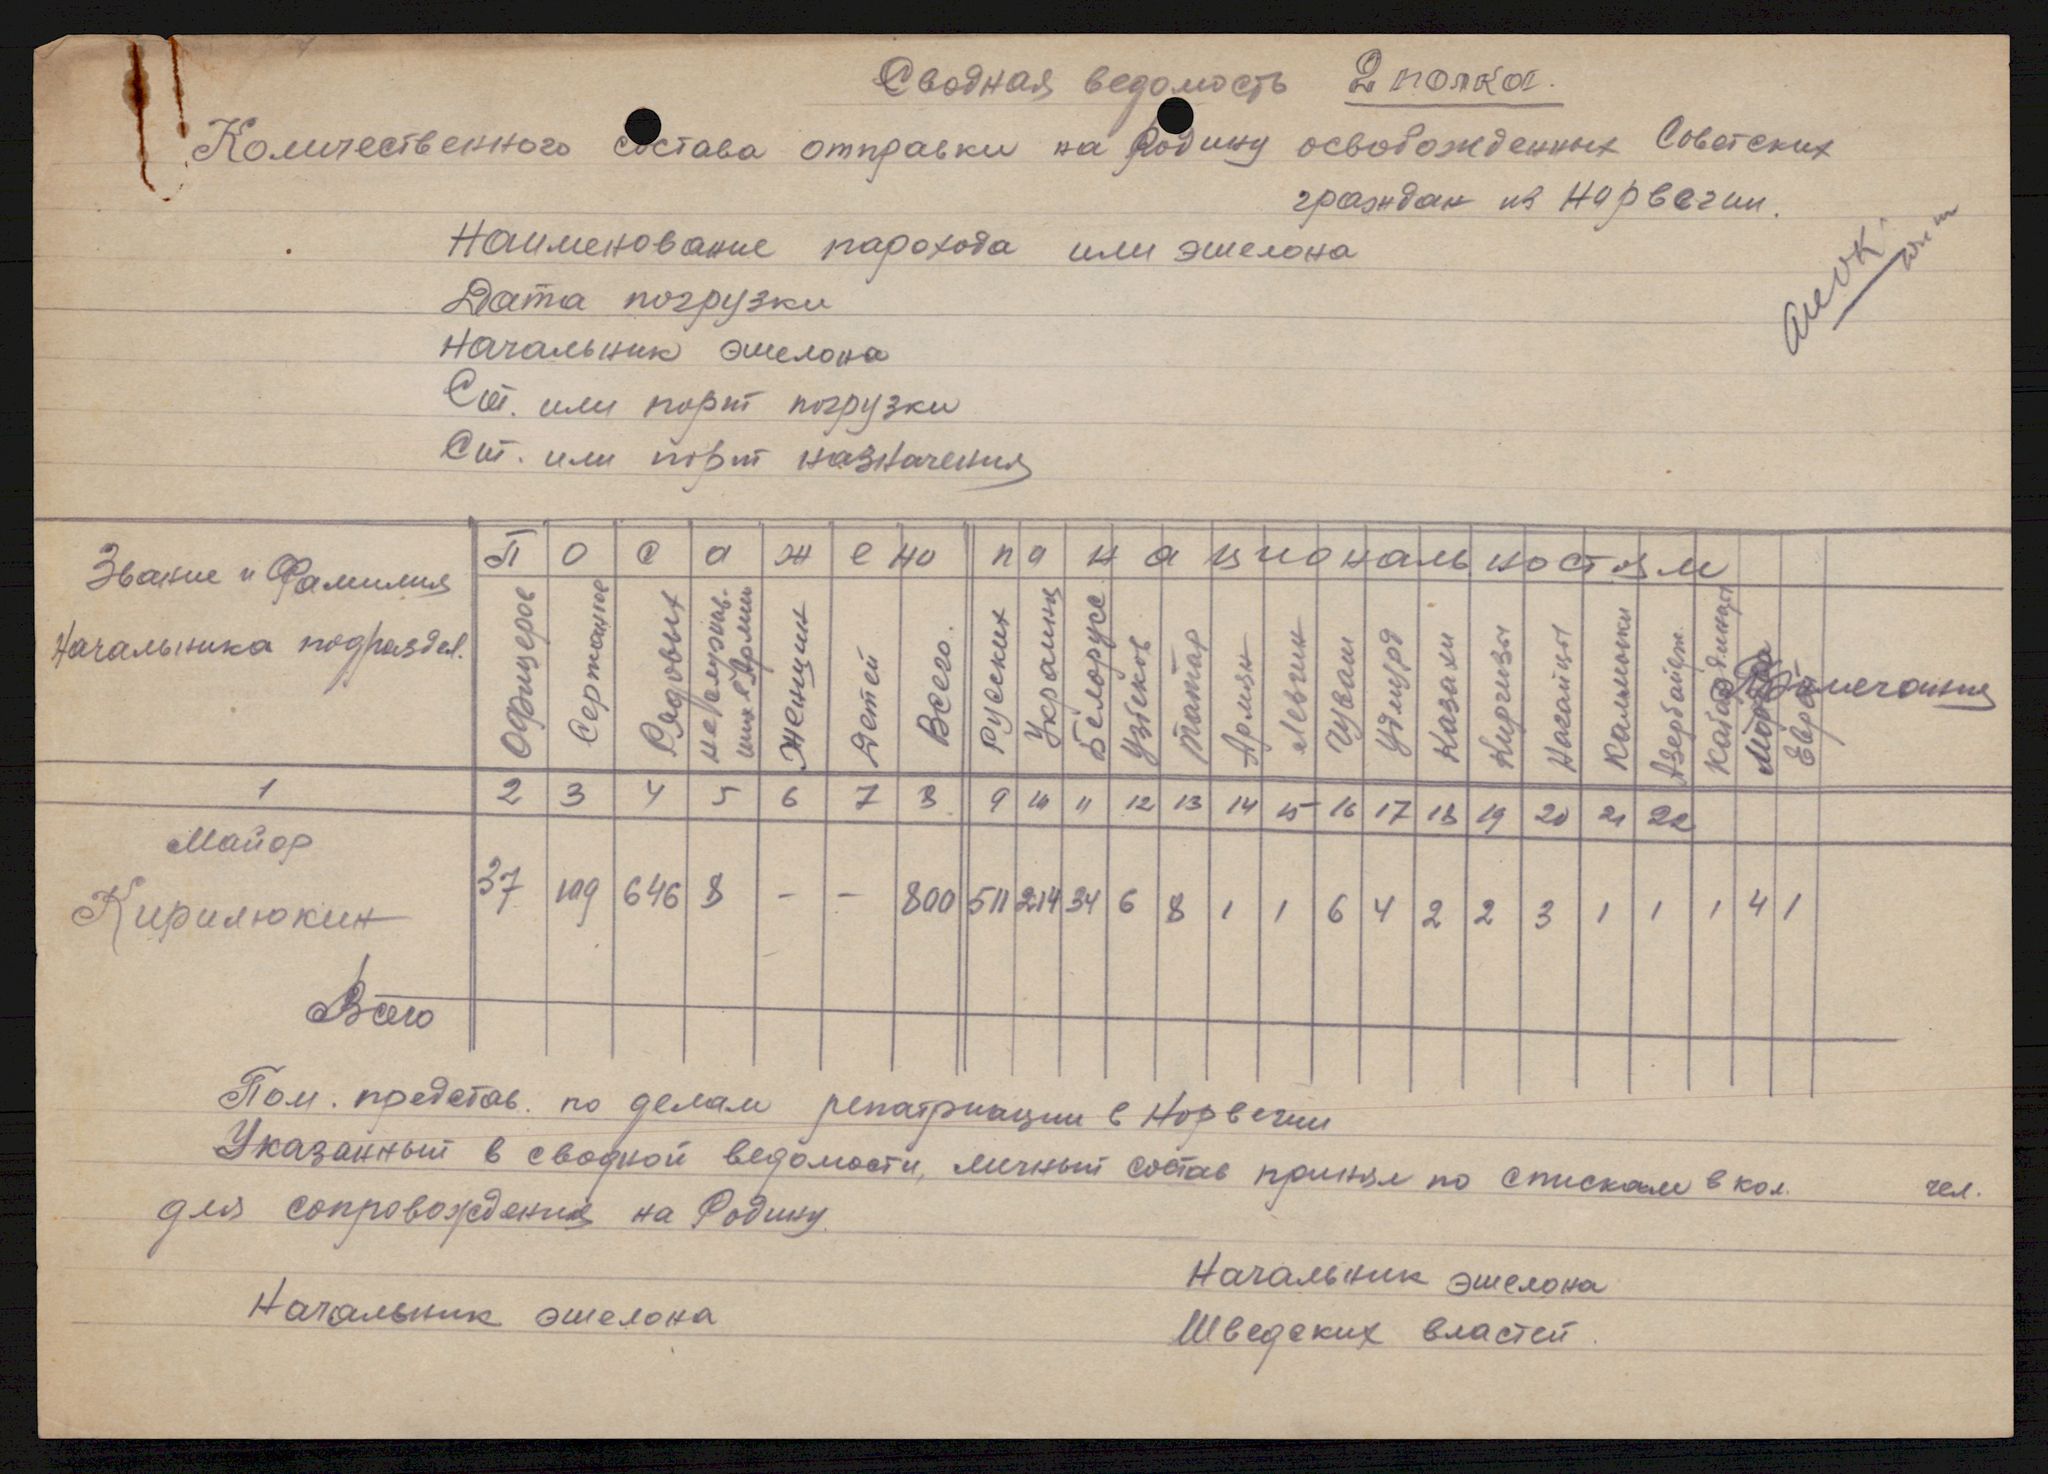 Сводная ведомость 2 полка.
Количественного состава отправки на Родину освобожденных Советских
граждан из Норвегии.
Наименование парохода или эшелона
Дата погрузки
Начальник эшелона
Ст. или порт погрузки
Ст. или порт назначения
Звание и Фамилия
Начальника подраздел.
Посажено по национальностям
Офицеров
Сержантов
Рядовых
не служив-
ших в Армии
Женщин
Детей
Всего.
Русских
Украинц
Белорусс
Узбеков
Татар
Армян
Лезгин
Чуваш
Удмурд
Казахи
Киргизы
Нагайцы
Калмыки
Азербайдж.
Кабардинцы
Мордва
Евре
Примечания
1 2 3 4 5 6 7 8 9 10 11 12 13 14 15 16 17 18 19 20 21 22
Майор
Кирилюкин 37 109 646 8 – – 800 511 214 34 6 8 1 1 6 4 2 2 3 1 1 1 4 1
Всего
Пом. представ. по делам репатриации в Норвегии
Указанный в сводной ведомости, личный состав принял по спискам в кол. чел.
для сопровождения на Родину.
Начальник эшелона
Начальник эшелона
Шведских властей.